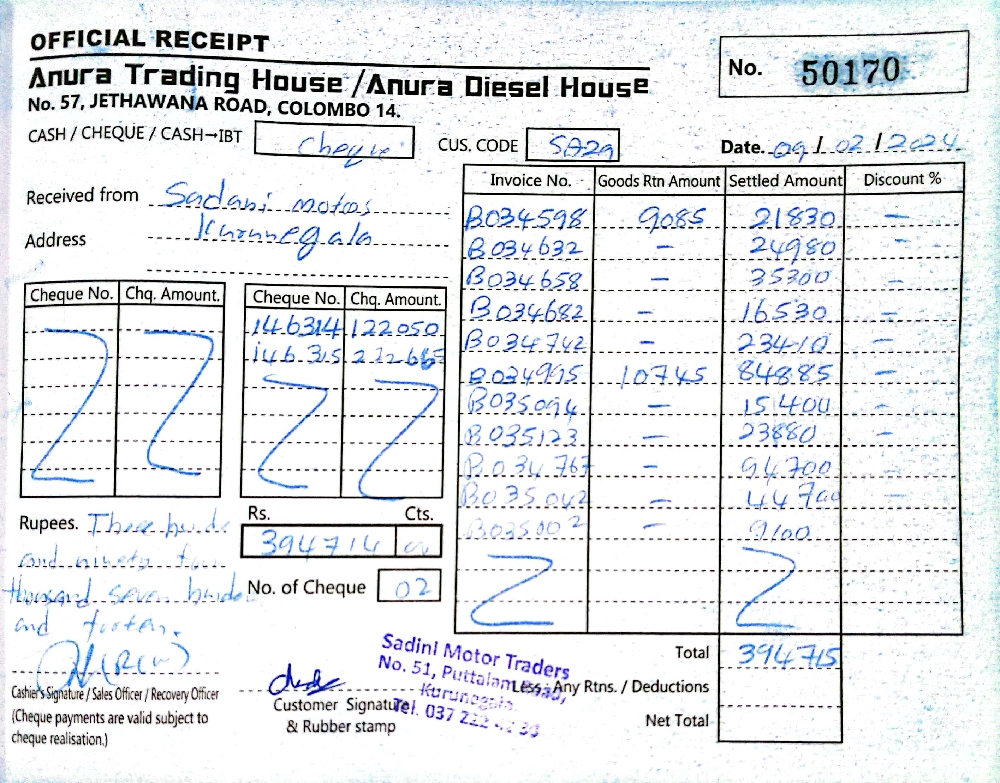 OFFICIAL RECEIPT
Anura Trading House /Anura Diesel House
No. 57, JETHAWANA ROAD, COLOMBO 14.
No. 50170
CASH / CHEQUE / CASH→IBT cheque
CUS. CODE SA29
Date. 09 / 02 / 2024
Received from Sadani motos
Address Kurunegala
Invoice No. Goods Rtn Amount Settled Amount Discount %
B034598 9085 21830 —
B034632 — 24980 —
B034658 — 35300 —
B034682 — 16530 —
B034742 — 23410 —
B034995 10745 84885 —
B035094 — 151400 —
B035123 — 23880 —
B034767 — 94700
B035042 — 44700 —
B035002 — 9100
Cheque No. Chq. Amount. Cheque No. Chq. Amount.
146314 122050
146315
Rs. Cts.
394714
No. of Cheque 02
Rupees. Three
and ninety four
thousand seven
and
Total 394715
Less. Any Rtns. / Deductions
Net Total
Cashier's Signature / Sales Officer / Recovery Officer
(Cheque payments are valid subject to
cheque realisation.)
Customer Signature
& Rubber stamp
Sadini Motor Traders
No. 51, Puttalam Road,
Kurunegala.
Tel. 037